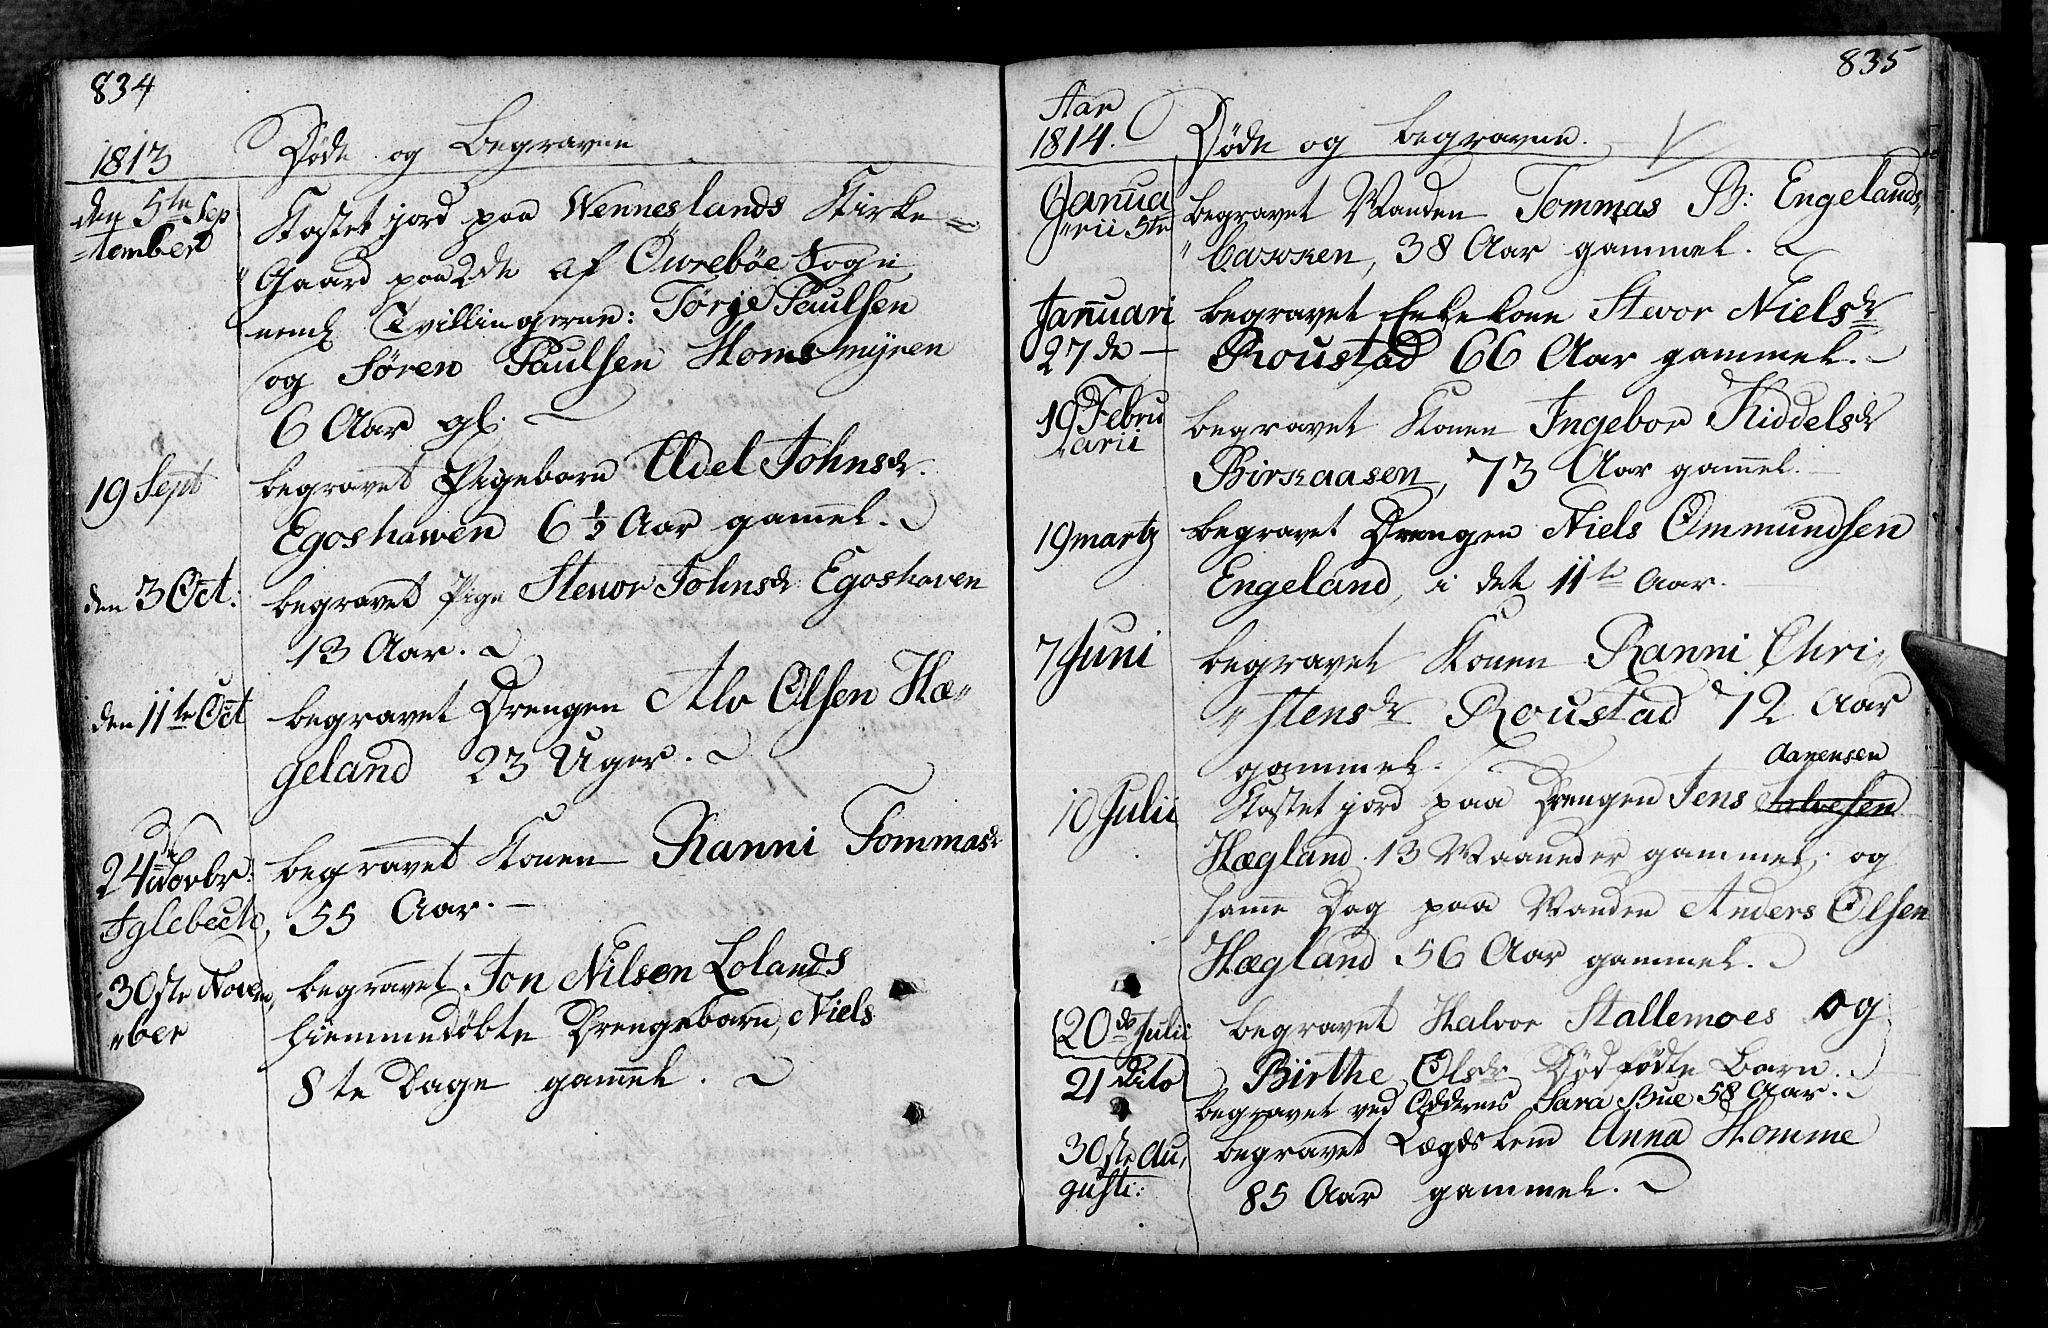 834
1813 Døde og Begravne
den 5te Sep Kastet jord paa Wenneslands Kirke=
=tember Gaard paa 2de af Øwrebøe Sogn,
neml Tvillingerne: Tørje Paulsen
og Søren Paulsen Homsmyren
6 Aar gl.
19 Sept begravet Pigebarn Adel Johnsdr.
Egoshawen 6 1/2 Aar gamel.
den 3 Oct: begravet Pige Stenvor Johnsdr Egoshaven
13 Aar.
den 11te Oct begravet Drengen Alv Olsen Hæ„
geland 23 Uger.
24de Novbr: begravet Konen Ranni Tommasdr
Iglebech, 55 Aar.
30ste Novem„ begravet Jon Nilsen Lolands
„ber hiemmedøbte Drengebarn, Niels
8te Dage gammel.
835
Aar
1814. Døde og begravne.
Janua begravet Manden Tommas B: Engelands„
„rii 5te „backen, 38 Aar gammel.
Januari begravet Enkekone Stevor Nielsdr
27de Roustad 66 Aar gammel.
19 Febru begravet Konen Ingebor Kiddelsdr
„arii Birkaasen, 73 Aar gamel.
19 martz begravet Drengen Niels Ommundsen
Engeland, i det 11te Aar.
7 Juni begravet Konen Ranni Chri„
„stensdr Roustad 72 Aar
gammel.
Aanensen
10 Julii Kastet jord paa Drengen Jens Salvesen
Hægland 13 Maaneder gammel, og
samme Dag paa Manden Anders Olsen
Hægland 56 Aar gammel.
20de Julii begravet Halvor Stallemoes og
Birthe Olsdr Dødfødte Barn.
21 Dito begravet ved Oddernes Sara Bue 58 Aar.
30ste Au„ begravet Lægdslem Anna Homme
gusti: 85 Aar gammel.